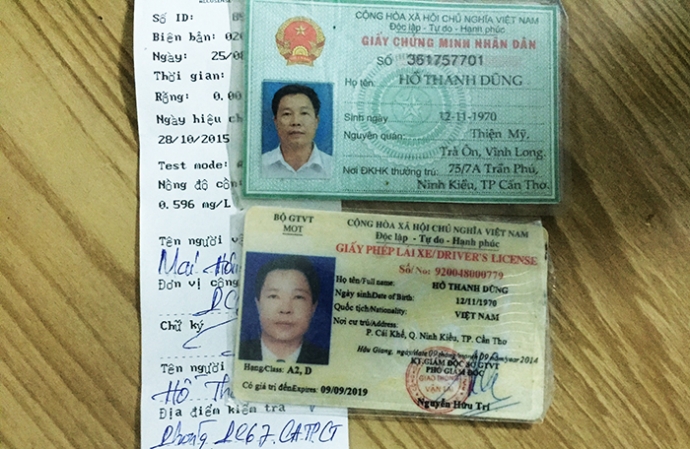 Số ID:
Biên bản: 020
Ngày: 25/08
Thời gian:
Rỗng: 0.00
Ngày hiệu ch
28/10/2015
Test mode:
Nồng độ cồ
0.596 mg/L
Tên người v
Mai
Đơn vị công
Chữ ký
Tên người
Hồ Th
Địa điểm kiểm tra
Phong
CỘNG HÒA XÃ HỘI CHỦ NGHĨA VIỆT NAM
Độc lập - Tự do - Hạnh phúc
GIẤY CHỨNG MINH NHÂN DÂN
Số 361757701
Họ tên: HỒ THANH DŨNG
Sinh ngày 12-11-1970
Nguyên quán: Thiện Mỹ,
Trà Ôn, Vĩnh Long.
Nơi ĐKHK thường trú: 75/7A Trần Phú,
Ninh Kiều, TP Cần Thơ.
BỘ GTVT
MOT
CỘNG HÒA XÃ HỘI CHỦ NGHĨA VIỆT NAM
Độc lập - Tự do - Hạnh phúc
GIẤY PHÉP LÁI XE/DRIVER'S LICENSE
Số/No: 920048000779
Họ tên/Full name: HỒ THANH DŨNG
Ngày sinh/Date of Birth: 12/11/1970
Quốc tịch/Nationality: VIỆT NAM
Nơi cư trú/Address:
P. Cái Khế, Q. Ninh Kiều, TP. Cần Thơ
Hậu Giang, ngày/date 09 tháng/month 09 năm/year 2014
KT.GIÁM ĐỐC SỞ GTVT
PHÓ GIÁM ĐỐC
Hạng/Class: A2, D
Có giá trị đến/Expires: 09/09/2019
Nguyễn Hữu Trí